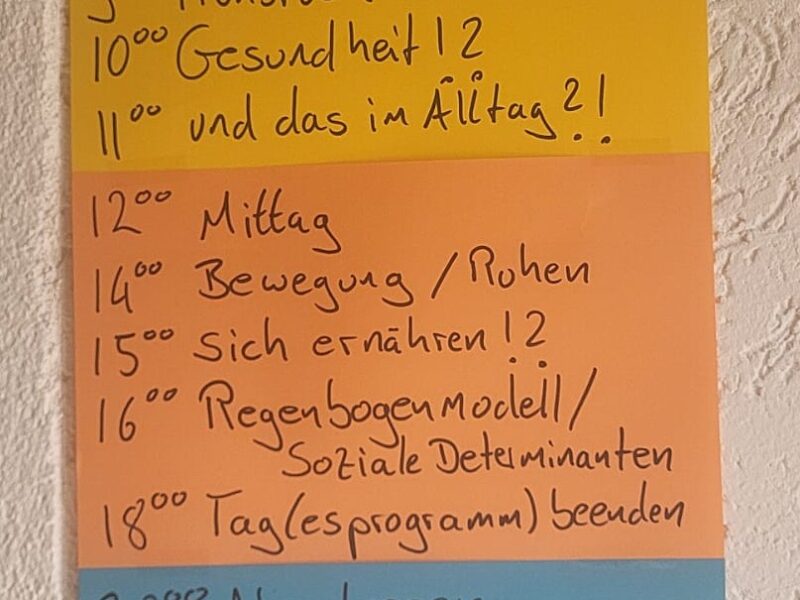 10⁰⁰ Gesundheit !?
11⁰⁰ und das im Alltag?!
12⁰⁰ Mittag
14⁰⁰ Bewegung / Ruhen
15⁰⁰ sich ernähren !?
16⁰⁰ Regenbogenmodell /
Soziale Determinanten
18⁰⁰ Tag(esprogramm) beenden